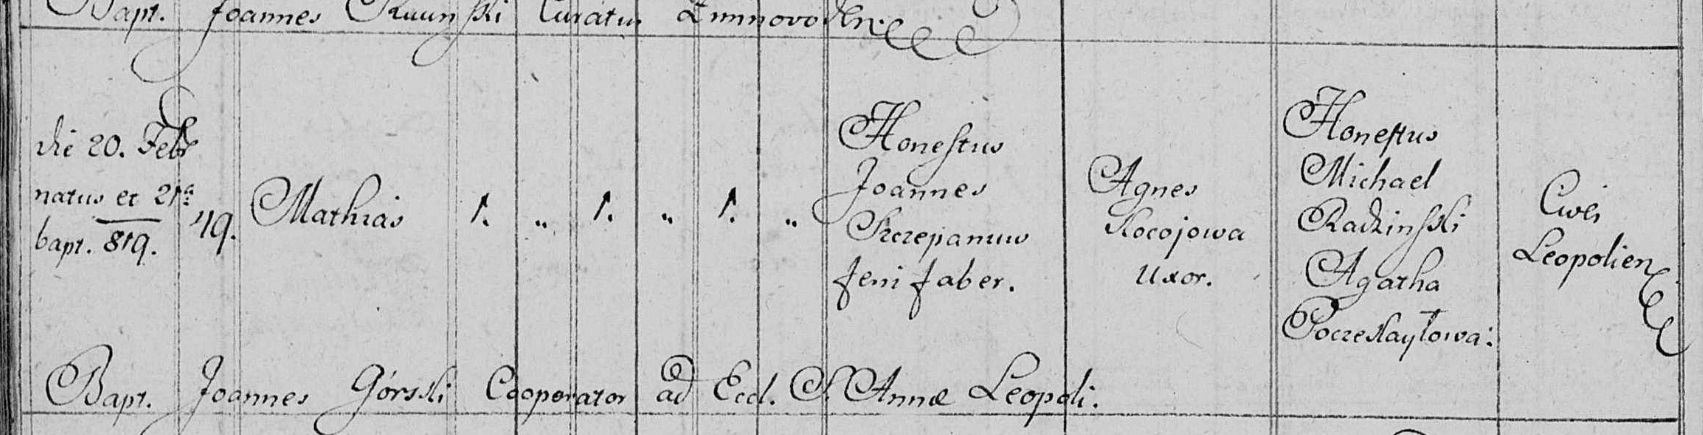 Bapt. Joannes Curatus
die 20. Febr
natus et 21ª
bapt. 819.
49.
Mathias
1. „ 1. „ 1. „
Honestus
Joannes
Szczepaniuw
feni faber.
Agnes
Kocojowa
Uxor.
Honestus
Michael
Radzinsski
Agatha
Poczekaytowa:
Cives
Leopolien
Bapt. Joannes Gorsski Cooperator ad Eccl. S. Annæ Leopoli.